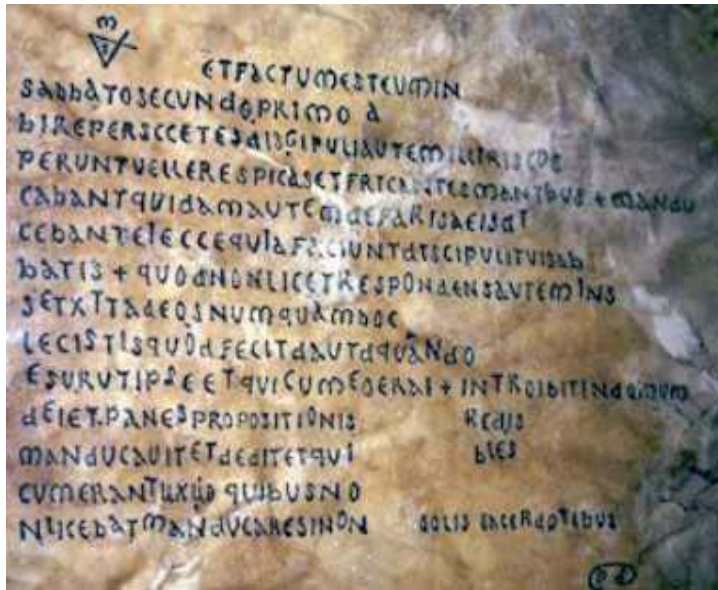 ETFACTUMESTEUMIN
SABBATOSECUNDO,PRIMO A
BIREPERSCCETESDISCIPULIAUTEMILLIRISCOE
PERUNTVELLERESPICASETFRICANTESMANIBUS + MANDU
CABANTQUIDAMAUTEMDEFARISAEISDT
CEBANTEIECCEQUIAFACIUNTDISCIPULITVISAB
BATIS + QUODNONLICETRESPONDENSAUTEMINS
SETXTTADEOSNUMQUAMHOC
LECISTISQUODFECITDAUTDQUANDO
ESURUTIPSEETQUICUMEOERAI + INTROIBITINDOMUM
DEIETPANESPROPOSITIONIS REDIS
MANDUCAUITETDEDITETQUI BLES
CUMERANTUXUO QUIBUSNO
NLICEBATMANDUCARESINON SOLIS SACERDOTIBUS